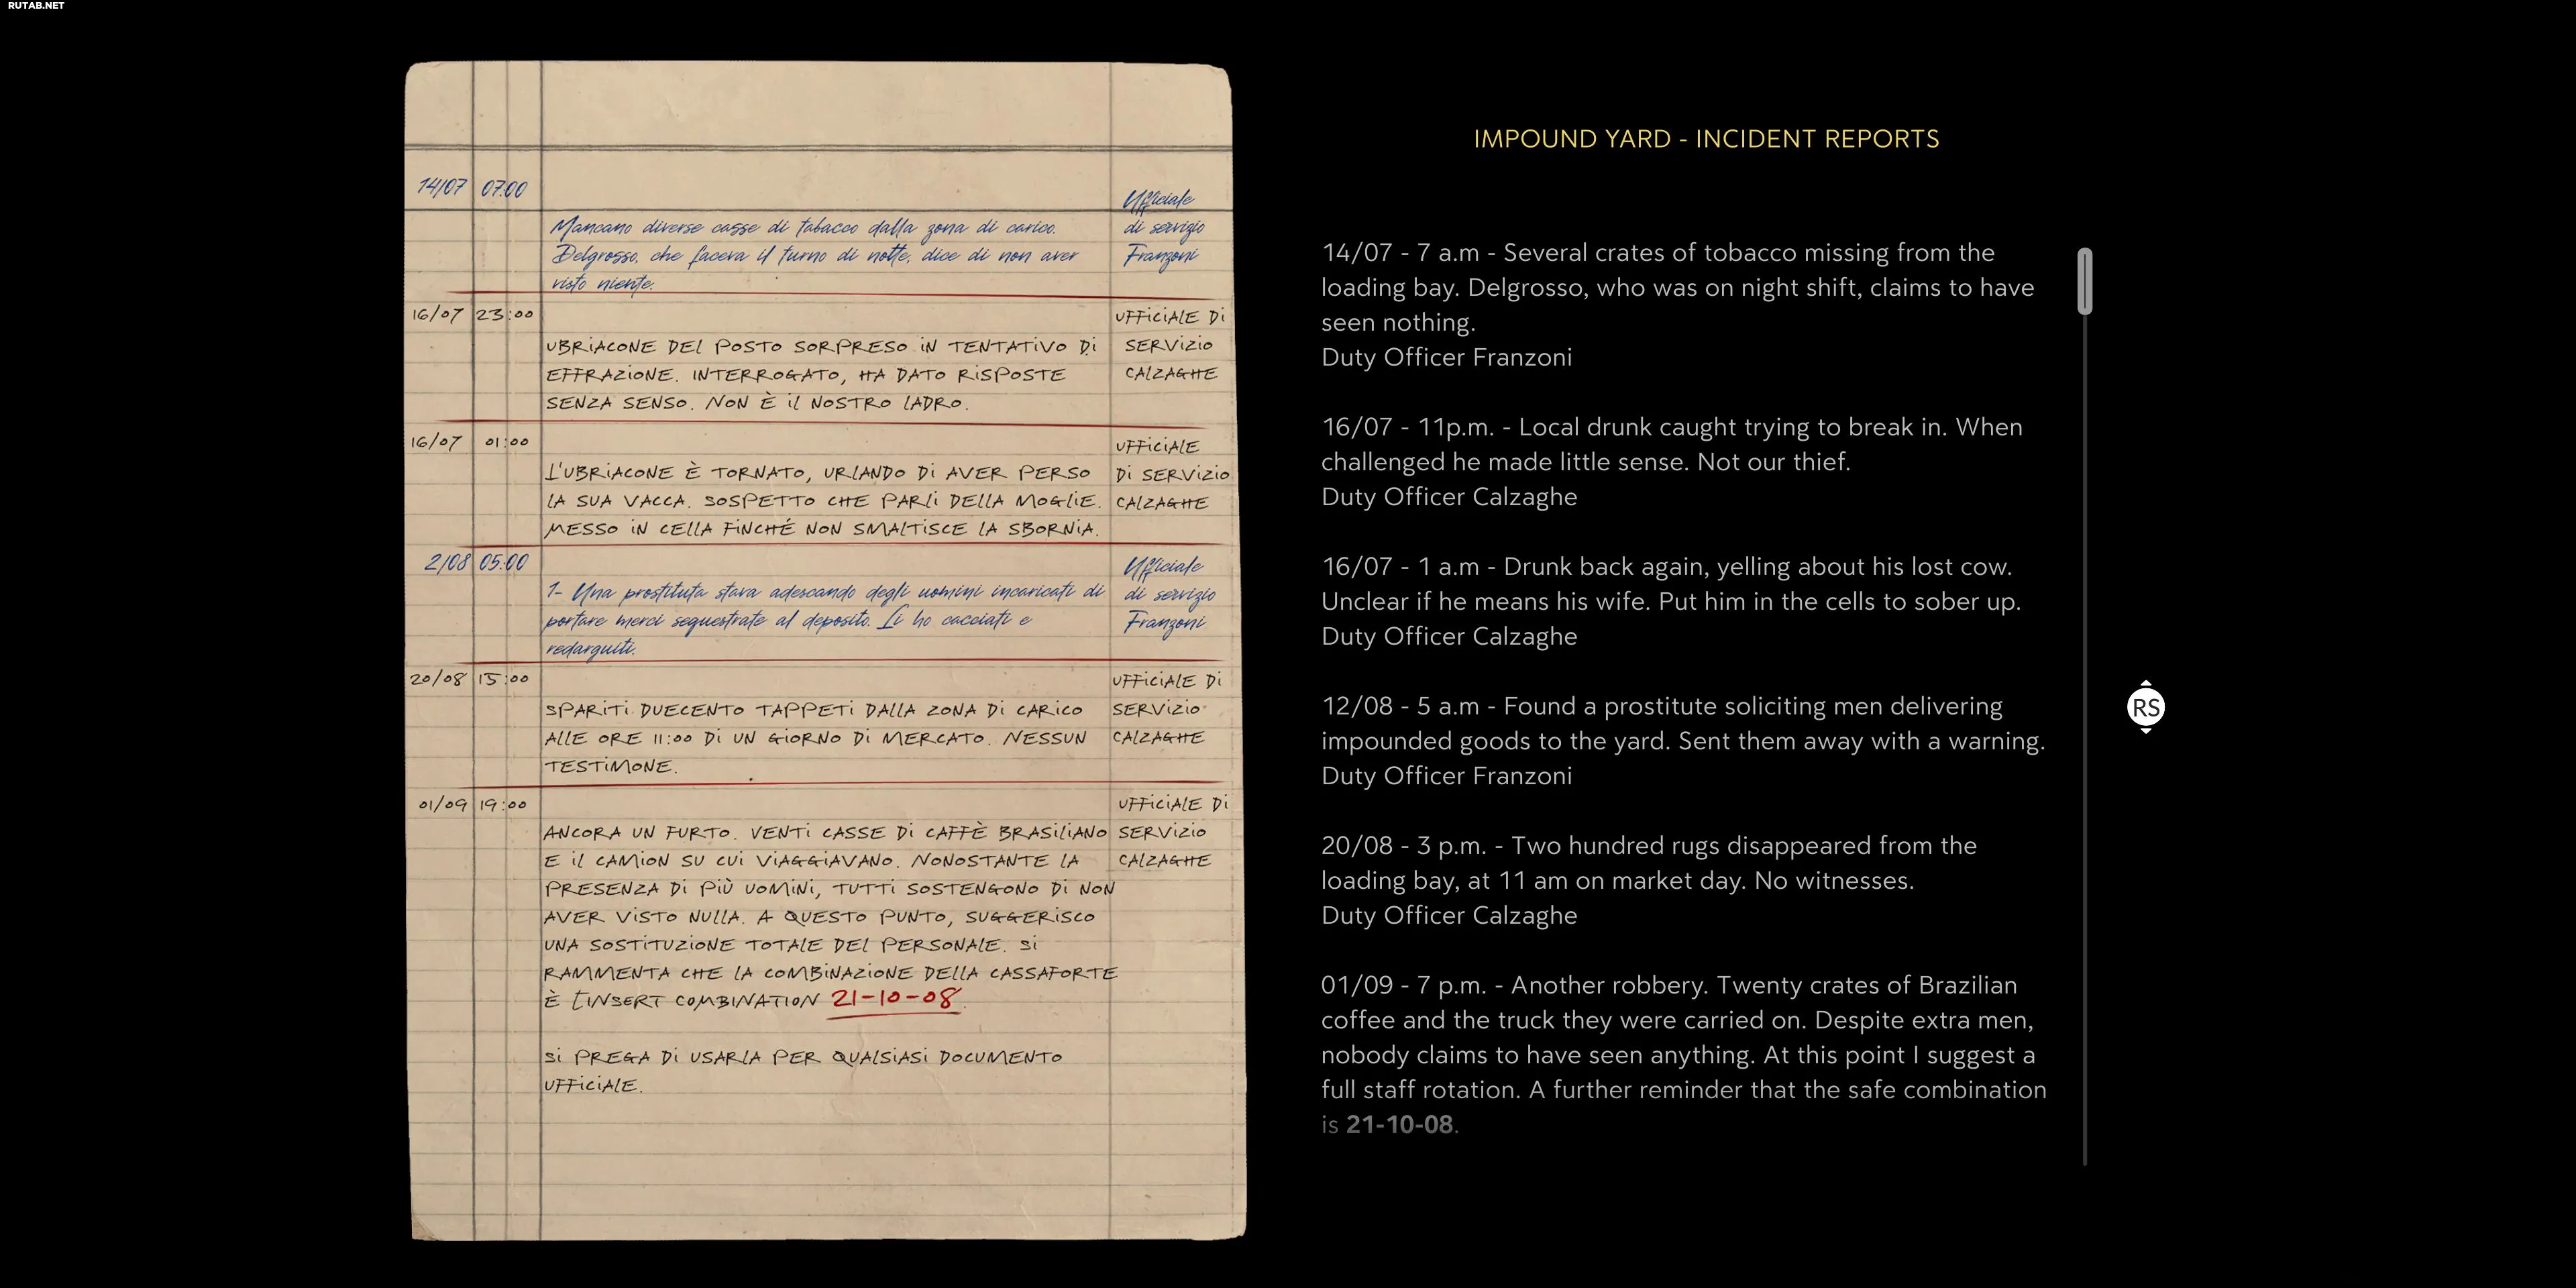 RUTAB.NET
14/07 07.00
Ufficiale
di servizio
Franzoni
Mancano diverse casse di tabacco dalla zona di carico.
Delgrosso, che faceva il turno di notte, dice di non aver
visto niente.
16/07 23:00
UFFICIALE DI
SERVIZIO
CALZAGHE
UBRIACONE DEL POSTO SORPRESO IN TENTATIVO DI
EFFRAZIONE. INTERROGATO, HA DATO RISPOSTE
SENZA SENSO. NON È IL NOSTRO LADRO.
16/07 01:00
UFFICIALE
DI SERVIZIO
CALZAGHE
L'UBRIACONE È TORNATO, URLANDO DI AVER PERSO
LA SUA VACCA. SOSPETTO CHE PARLI DELLA MOGLIE.
MESSO IN CELLA FINCHÉ NON SMALTISCE LA SBORNIA.
2/08 05:00
Ufficiale
di servizio
Franzoni
1- Una prostituta stava adescando degli uomini incaricati di
portare merci sequestrate al deposito. Li ho cacciati e
redarguiti.
20/08 15:00
UFFICIALE DI
SERVIZIO
CALZAGHE
SPARITI DUECENTO TAPPETI DALLA ZONA DI CARICO
ALLE ORE 11:00 DI UN GIORNO DI MERCATO. NESSUN
TESTIMONE.
01/09 19:00
UFFICIALE DI
SERVIZIO
CALZAGHE
ANCORA UN FURTO. VENTI CASSE DI CAFFÈ BRASILIANO
E IL CAMION SU CUI VIAGGIAVANO. NONOSTANTE LA
PRESENZA DI PIÙ UOMINI, TUTTI SOSTENGONO DI NON
AVER VISTO NULLA. A QUESTO PUNTO, SUGGERISCO
UNA SOSTITUZIONE TOTALE DEL PERSONALE. SI
RAMMENTA CHE LA COMBINAZIONE DELLA CASSAFORTE
È [INSERT COMBINATION 21-10-08.
SI PREGA DI USARLA PER QUALSIASI DOCUMENTO
UFFICIALE.
IMPOUND YARD - INCIDENT REPORTS
14/07 - 7 a.m - Several crates of tobacco missing from the
loading bay. Delgrosso, who was on night shift, claims to have
seen nothing.
Duty Officer Franzoni
16/07 - 11p.m. - Local drunk caught trying to break in. When
challenged he made little sense. Not our thief.
Duty Officer Calzaghe
16/07 - 1 a.m - Drunk back again, yelling about his lost cow.
Unclear if he means his wife. Put him in the cells to sober up.
Duty Officer Calzaghe
12/08 - 5 a.m - Found a prostitute soliciting men delivering
impounded goods to the yard. Sent them away with a warning.
Duty Officer Franzoni
20/08 - 3 p.m. - Two hundred rugs disappeared from the
loading bay, at 11 am on market day. No witnesses.
Duty Officer Calzaghe
01/09 - 7 p.m. - Another robbery. Twenty crates of Brazilian
coffee and the truck they were carried on. Despite extra men,
nobody claims to have seen anything. At this point I suggest a
full staff rotation. A further reminder that the safe combination
is 21-10-08.
RS